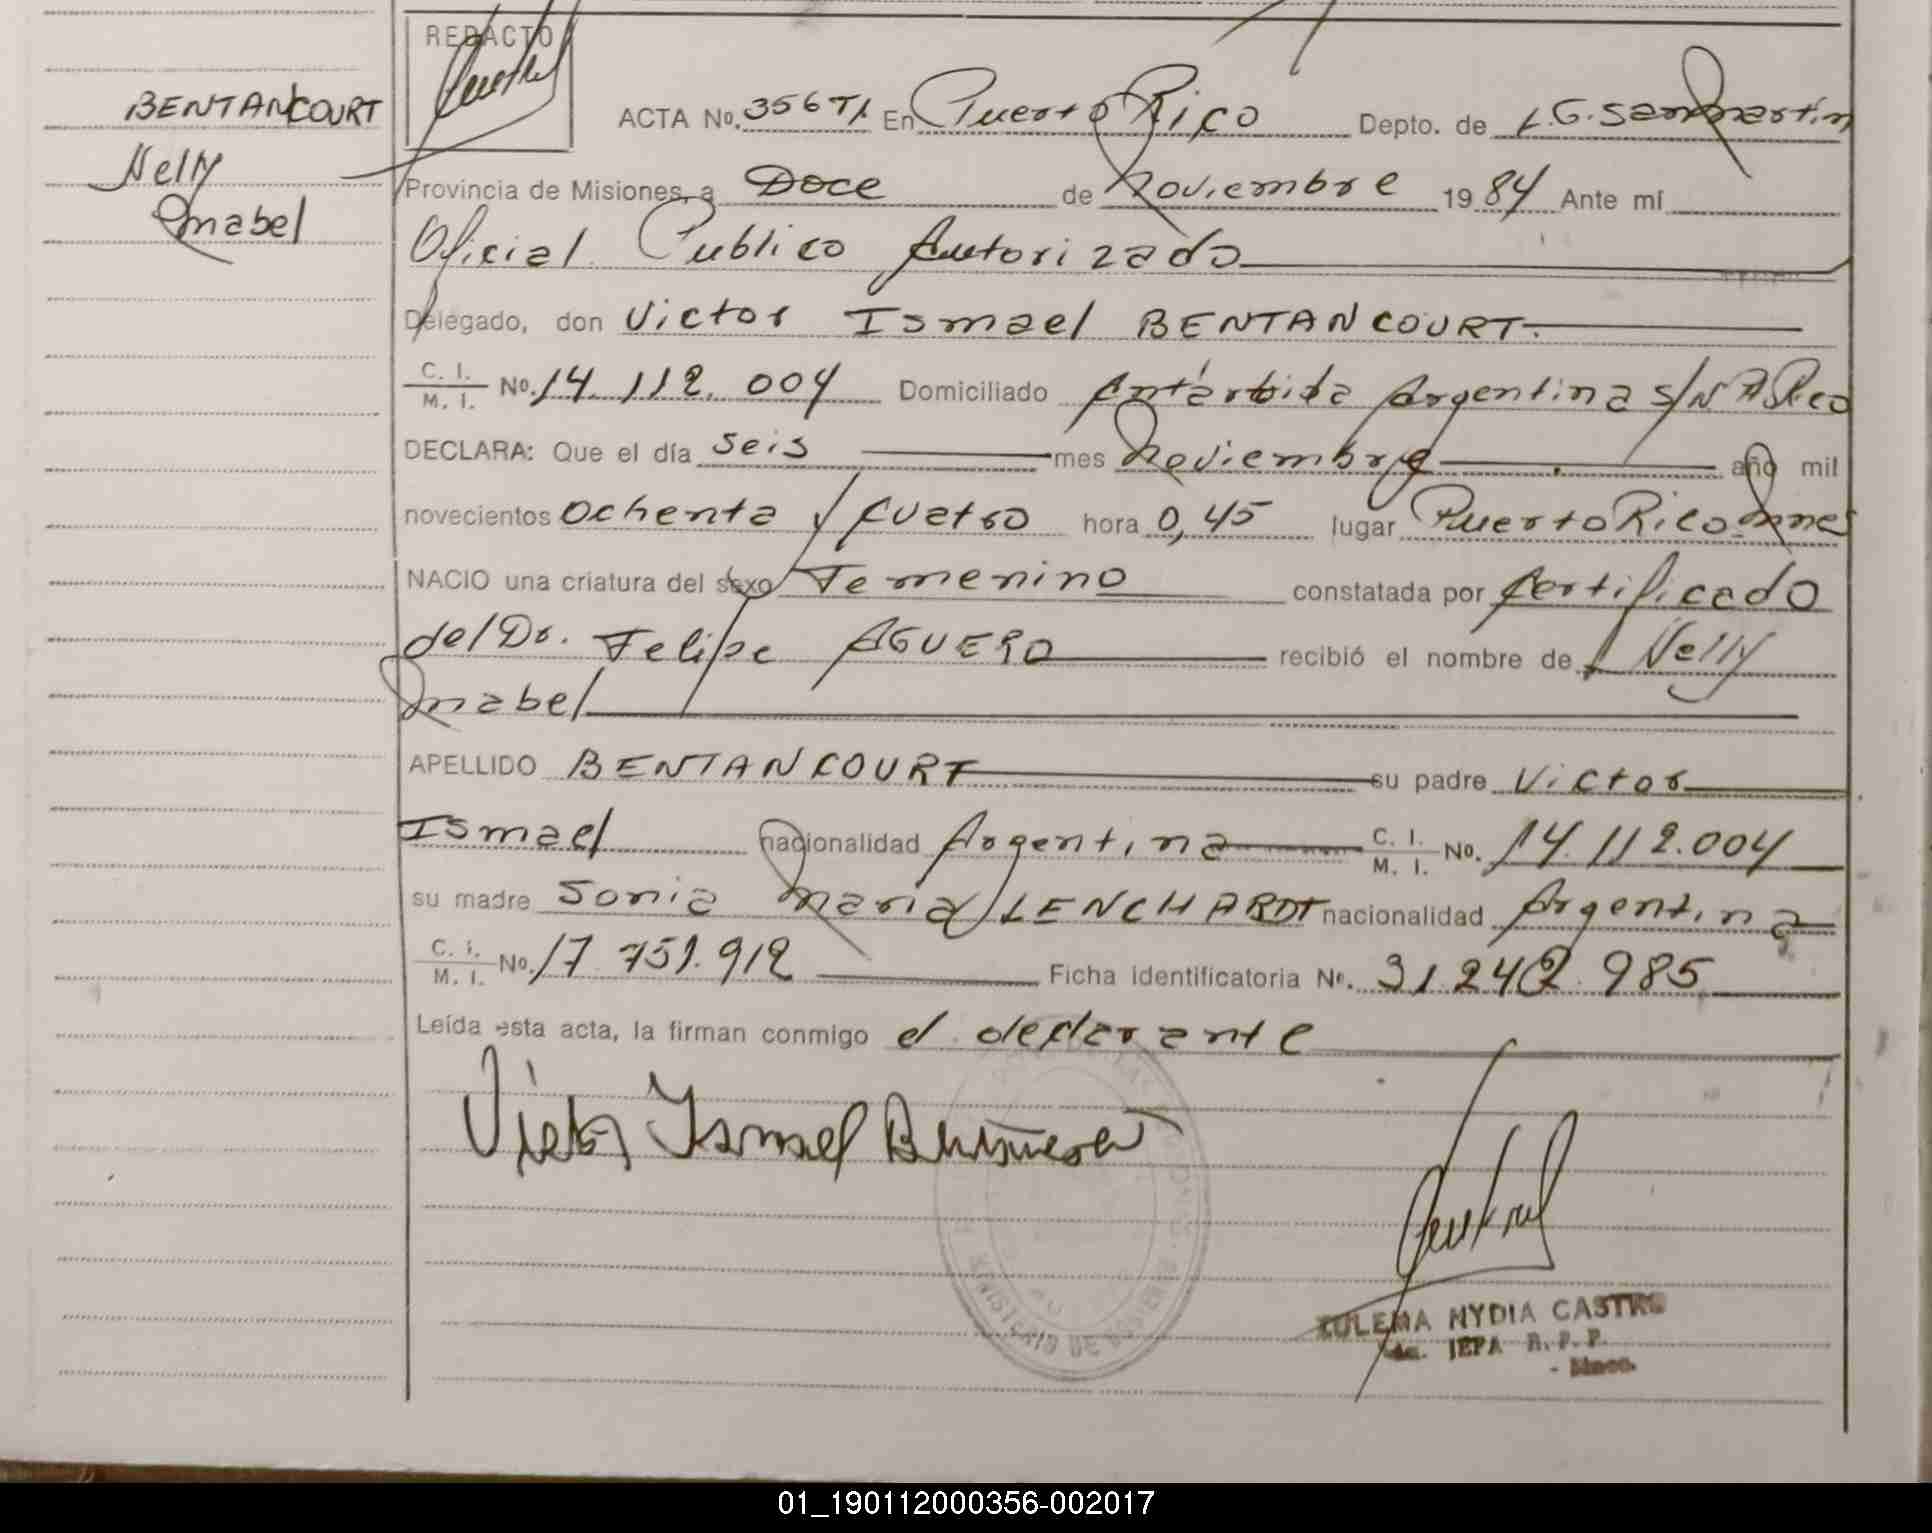 REDACTO
BENTANCOURT
Nelly
Mabel
ACTA No. 356 T1. En Puerto Rico Depto. de L.G.San Martin
Provincia de Misiones, a Doce de Noviembre 1984 Ante mí
Oficial Publico Autorizado
Delegado, don Victor Ismael BENTANCOURT.
C. I. / M. I. No. 14.112.004 Domiciliado Antártida Argentina S/N P Rico
DECLARA: Que el día seis mes Noviembre año mil
novecientos ochenta y cuatro hora 0,45 lugar Puerto Rico Mnes
NACIO una criatura del sexo Femenino constatada por certificado
del Dr. Felipe AGUERO recibió el nombre de Nelly
Mabel
APELLIDO BENTANCOURT su padre Victor
Ismael nacionalidad Argentina C. I. / M. I. No. 14.112.004
su madre Sonia Maria LENCHARDT nacionalidad Argentina
C. I. / M. I. No. 17.751.912 Ficha identificatoria No. 31.242.985
Leída esta acta, la firman conmigo el declarante
Victor Ismael Bentancourt
MINISTERIO DE GOBIERNO
ZULEMA NYDIA CASTRO
JEFA R. P. P.
01_190112000356-002017